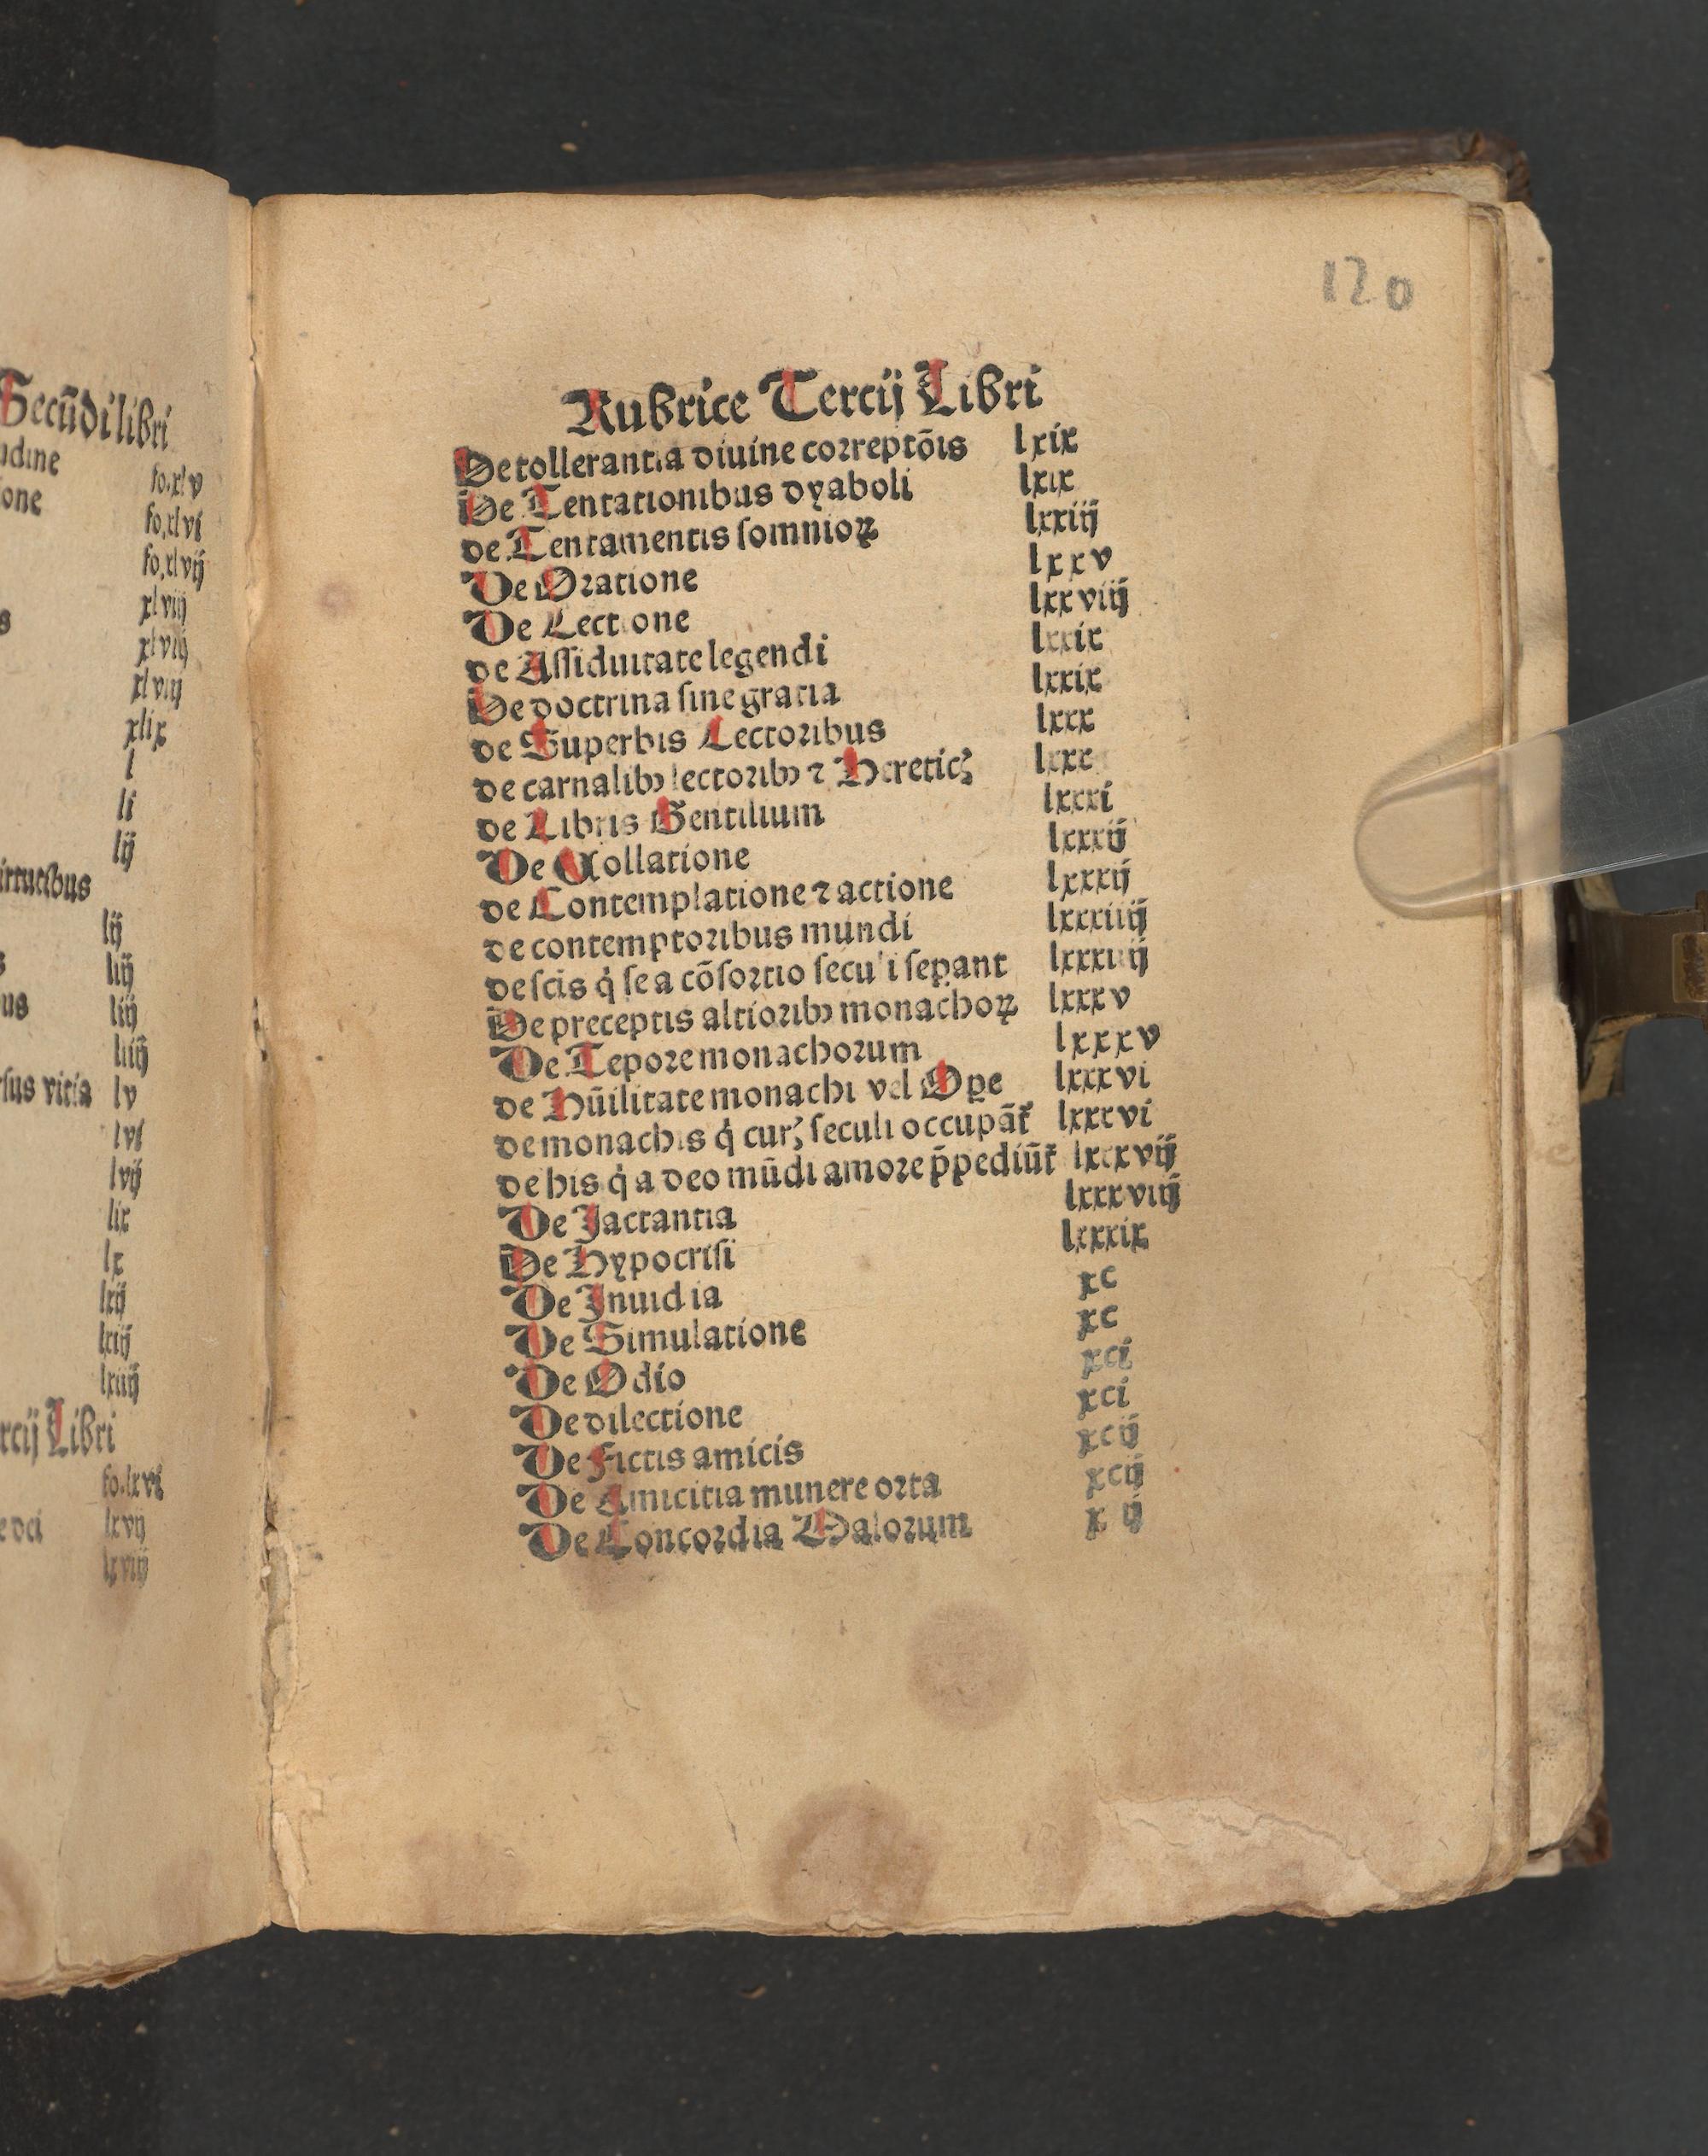 Secūdi libri
udine fo.xlv
ione fo.xlvi
fo.xlvij
xlviij
s xlviij
xlviiij
xlix
l
li
lij
irtutibus
lij
s liij
us liij
liiij
rsus vitia lv
lvi
lvij
lix
lx
lxij
lxiij
lxiiij
rcij Libri
fo.lxvi
e dei lxvij
lxviij
120
Rubrice Tercij Libri
De tollerantia diuine correptōis lxix
De Tentationibus dyaboli lxix
de Tentamentis somnioꝝ lxxiij
De Oratione lxxv
De Lectione lxxviij
de Assiduitate legendi lxxix
De doctrina sine gratia lxxix
de Superbis Lectoribus lxxx
de carnalibꝰ lectoribꝰ ⁊ Heretic̛ lxxx
de Libris Gentilium lxxxi
De Collatione lxxxij
de Contemplatione ⁊ actione lxxxij
de contemptoribus mundi lxxxiiij
de scis q̇ se a cōsortio seculi sepant lxxxiiij
De preceptis altioribꝰ monachoꝝ lxxxv
De Tepore monachorum lxxxv
de Hūilitate monachi vel Ope lxxxvi
de monachis q̇ cur̛ seculi occupāt̛ lxxxvi
de his q̇ a deo mūdi amore p̄pediūt̛ lxxxvij
De Jactantia lxxxviij
De Hypocrisi lxxxix
De Inuidia xc
De Simulatione xc
De Odio xci
De dilectione xci
De Fictis amicis xcij
De Amicitia munere orta xcij
De Concordia Malorum x ij